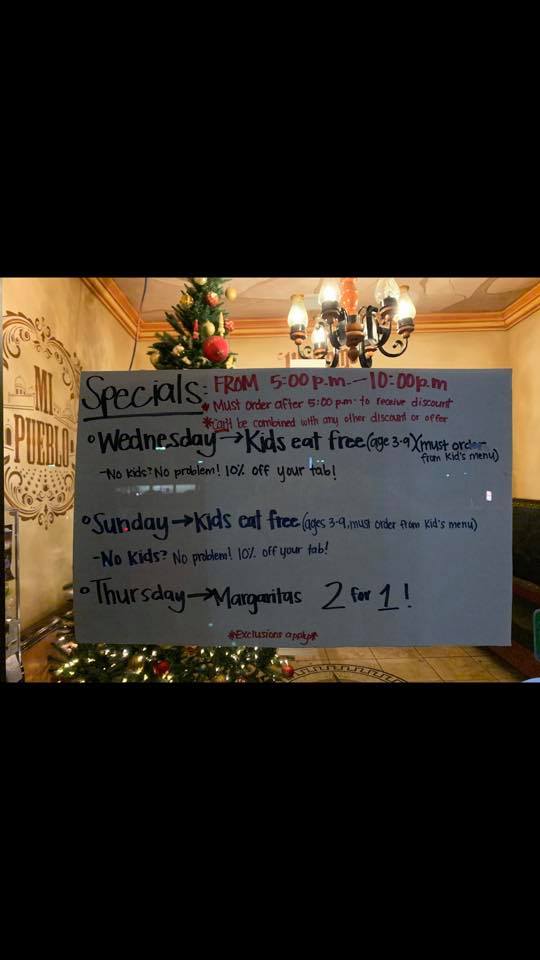 MI
PUEBLO
Specials: FROM 5:00 p.m. — 10:00 p.m
* Must order after 5:00 p.m. to receive discount
*Can't be combined with any other discount or offer
° Wednesday → Kids eat free (age 3-9) (must order
from Kid's menu)
-No Kids? No problem! 10% off your tab!
° Sunday → Kids eat free (ages 3-9, must order from Kid's menu)
- No Kids? No problem! 10% off your tab!
° Thursday → Margaritas 2 for 1!
*Exclusions apply*